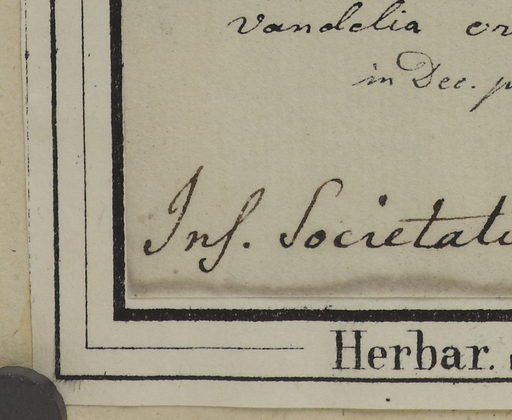 Vandelia
in Dec.
Ins. Societatis
Herbar.